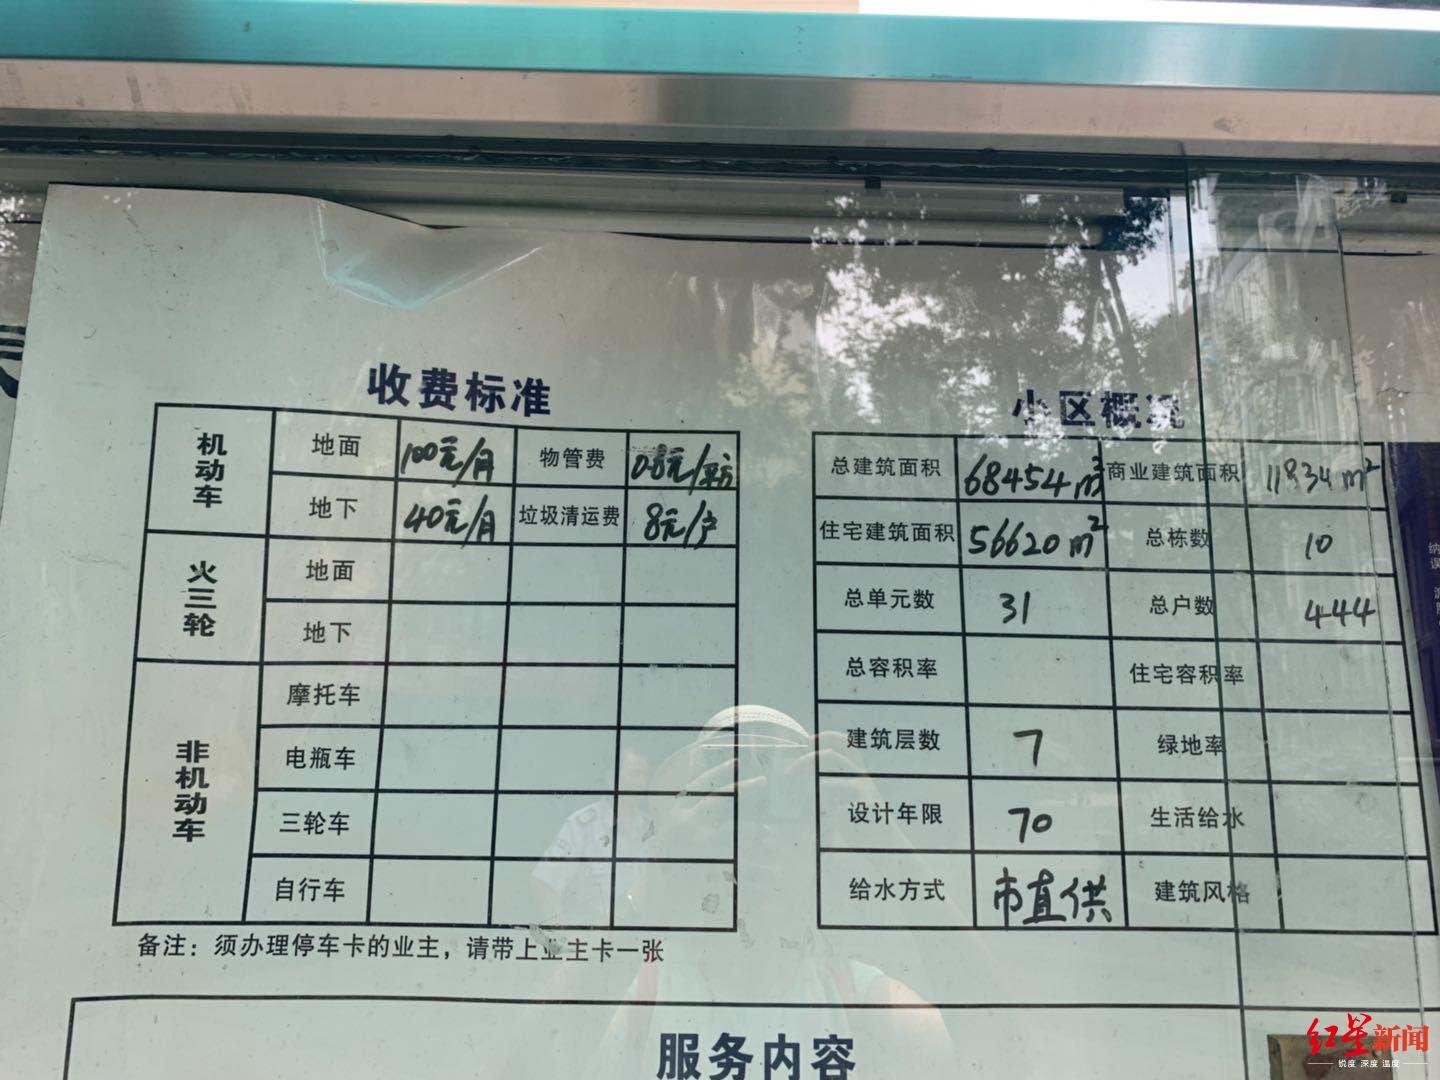 收费标准
机动车 地面 100元/月 物管费 0.8元/平方
地下 40元/月 垃圾清运费 8元/户
火三轮 地面
地下
非机动车 摩托车
电瓶车
三轮车
自行车
备注：须办理停车卡的业主，请带上业主卡一张
小区概况
总建筑面积 68454m² 商业建筑面积 11834m²
住宅建筑面积 56620m² 总栋数 10
总单元数 31 总户数 444
总容积率 住宅容积率
建筑层数 7 绿地率
设计年限 70 生活给水
给水方式 市直供 建筑风格
服务内容
红星新闻
锐度 深度 温度